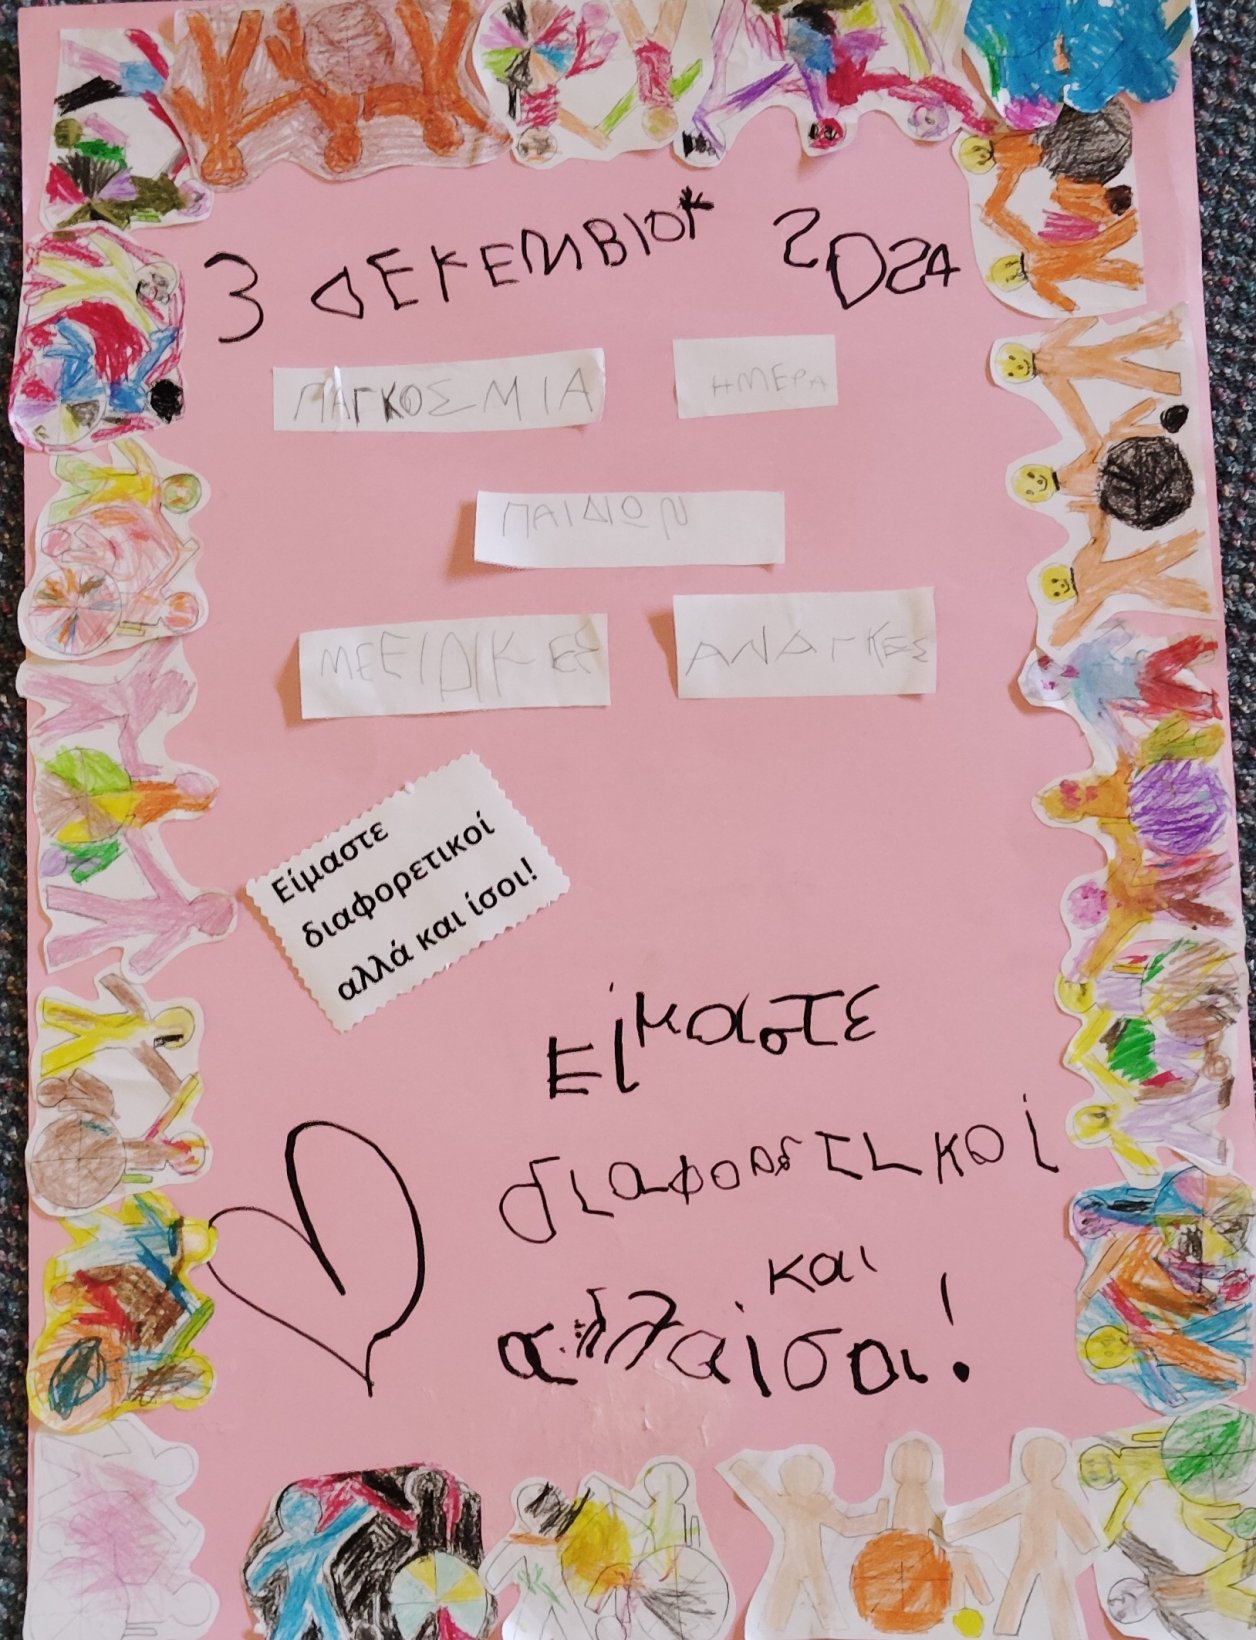 3 ΔΕΚΕΜΒΙΟΚ 2024
ΠΑΓΚΟΣΜΙΑ ΗΜΕΡΑ
ΠΑΙΔΙΩΝ
ΜΕΕΙΔΙΚΕΣ ΑΝΑΓΚΕΣ
Είμαστε
διαφορετικοί
αλλά και ίσοι!
Είμαστε
διαφορετικοί
και
αλλα ίσοι!